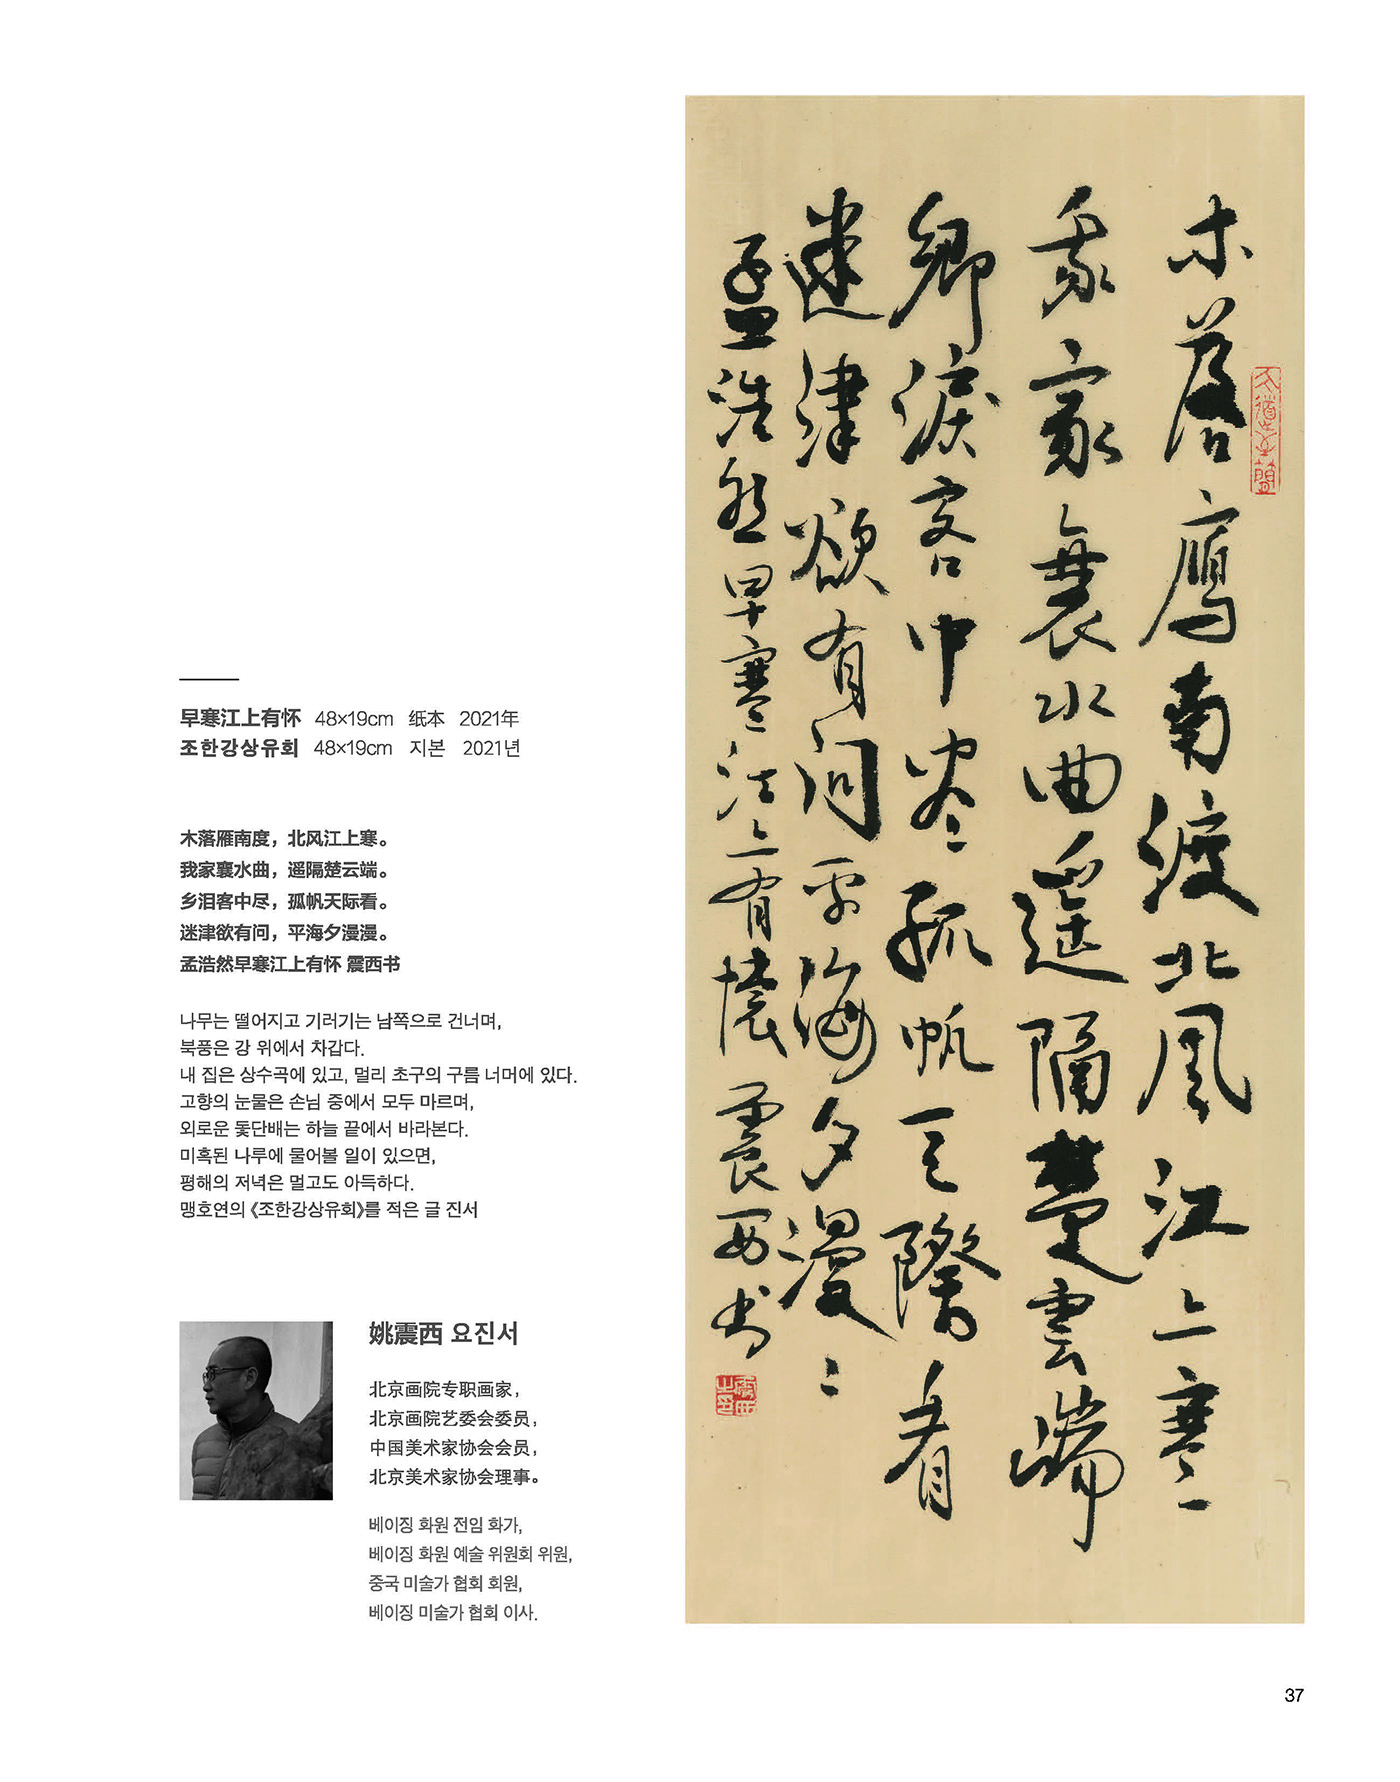 早寒江上有怀 48×19cm 纸本 2021年
조한강상유회 48×19cm 지본 2021년
木落雁南度，北风江上寒。
我家襄水曲，遥隔楚云端。
乡泪客中尽，孤帆天际看。
迷津欲有问，平海夕漫漫。
孟浩然早寒江上有怀 震西书
나무는 떨어지고 기러기는 남쪽으로 건너며,
북풍은 강 위에서 차갑다.
내 집은 상수곡에 있고, 멀리 초구의 구름 너머에 있다.
고향의 눈물은 손님 중에서 모두 마르며,
외로운 돛단배는 하늘 끝에서 바라본다.
미혹된 나루에 물어볼 일이 있으면,
평해의 저녁은 멀고도 아득하다.
맹호연의 《조한강상유회》를 적은 글 진서
姚震西 요진서
北京画院专职画家，
北京画院艺委会委员，
中国美术家协会会员，
北京美术家协会理事。
베이징 화원 전임 화가,
베이징 화원 예술 위원회 위원,
중국 미술가 협회 회원,
베이징 미술가 협회 이사.
木落鴈南渡北風江上寒
我家襄水曲遥隔楚雲端
鄉淚客中尽孤帆天際看
迷津欲有问平海夕漫〻
孟浩然早寒江上有懷震西书
37